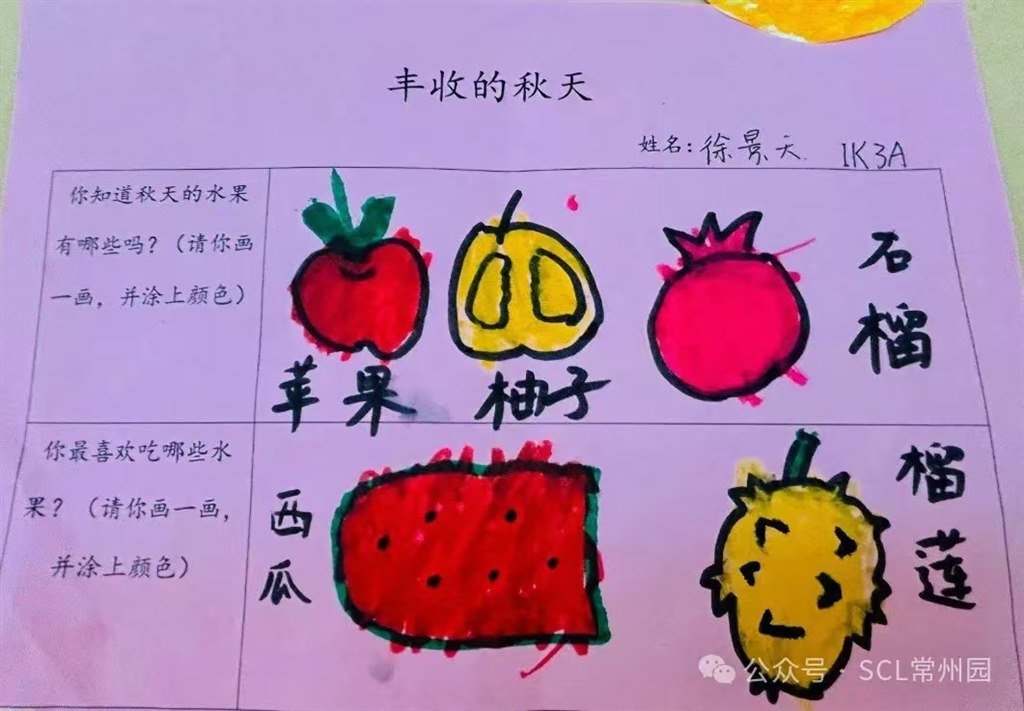 丰收的秋天
姓名：徐景天 1K3A
你知道秋天的水果
有哪些吗？（请你画
一画，并涂上颜色）
苹果
柚子
石
榴
你最喜欢吃哪些水
果？（请你画一画，
并涂上颜色）
西
瓜
榴
莲
公众号·SCL常州园